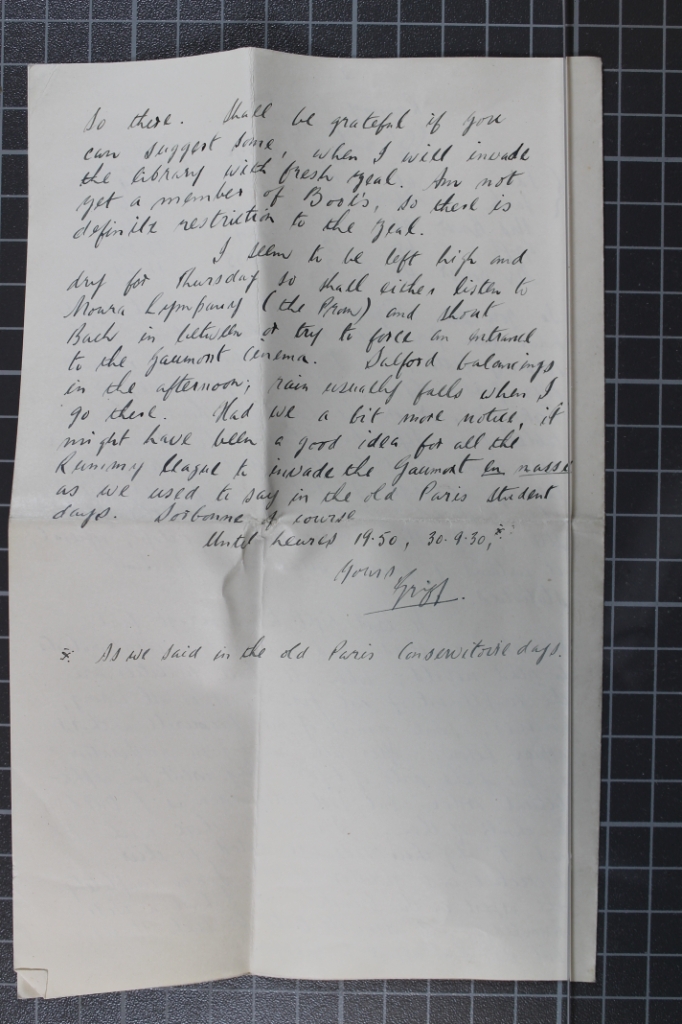 So there. Shall be grateful if you
can suggest some, when I will invade
the library with fresh zeal. Am not
yet a member of Boot's, so there is
definite restriction to the zeal.
I seem to be left high and
dry for Thursday so shall either listen to
Moura Lympany (the Prom) and shout
Bach in between or try to force an entrance
to the Gaumont Cinema. Salford balancings
in the afternoon; rain usually falls when I
go there. Had we a bit more notice, it
might have been a good idea for all the
Rummy League to invade the Gaumont en masse
as we used to say in the old Paris student
days. Sorbonne of course
Until heures 19.50, 30.9.30,*
Yours
Griff.
* As we said in the old Paris Conservitoire days.